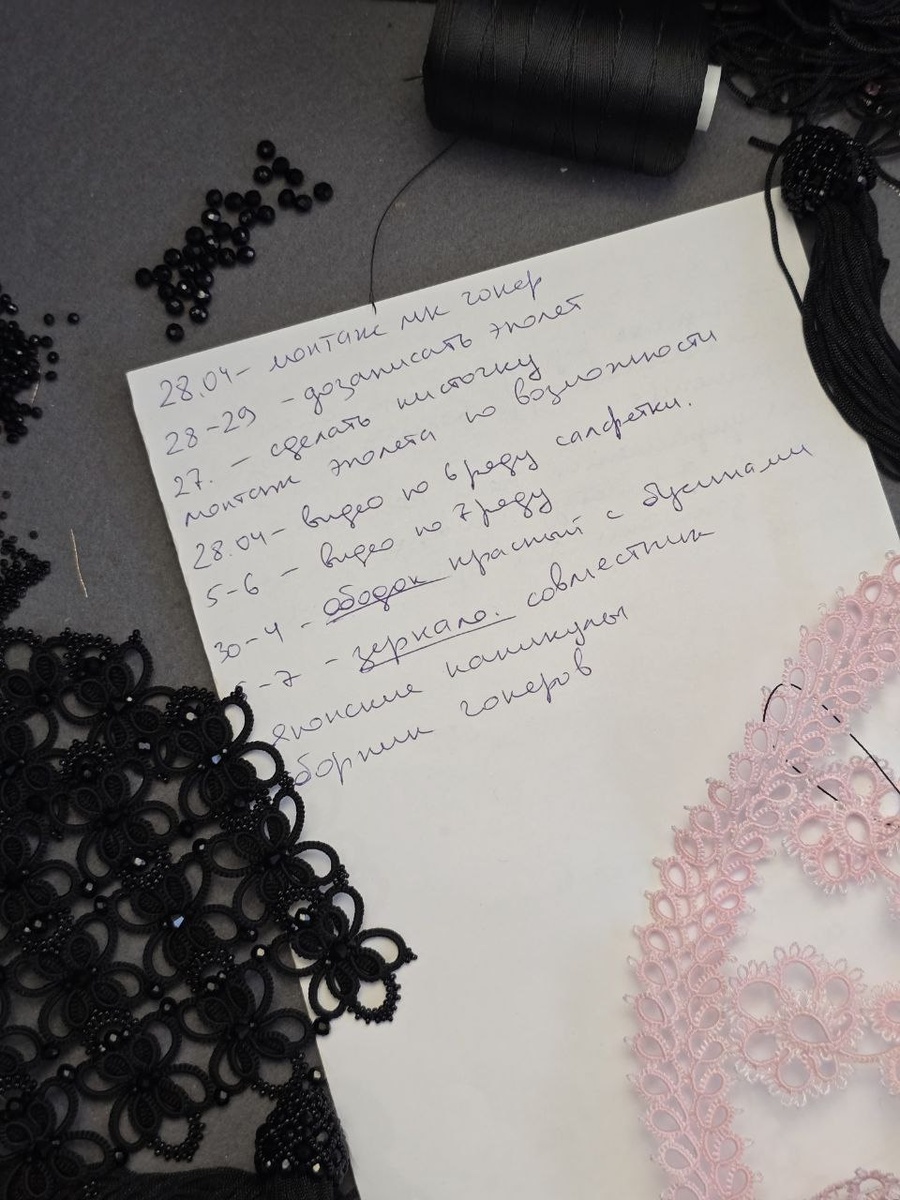 28.04 - монтаж мк чокер
28-29 - дозаписать эполет
27. - сделать кисточку
монтаж эполета по возможности
28.04 - видео по 6 ряду салфетки.
5-6 - видео по 7 ряду
30-4 - ободок красный с бусинами
-7 - зеркало. совместник
японские каникулы
борник чокеров